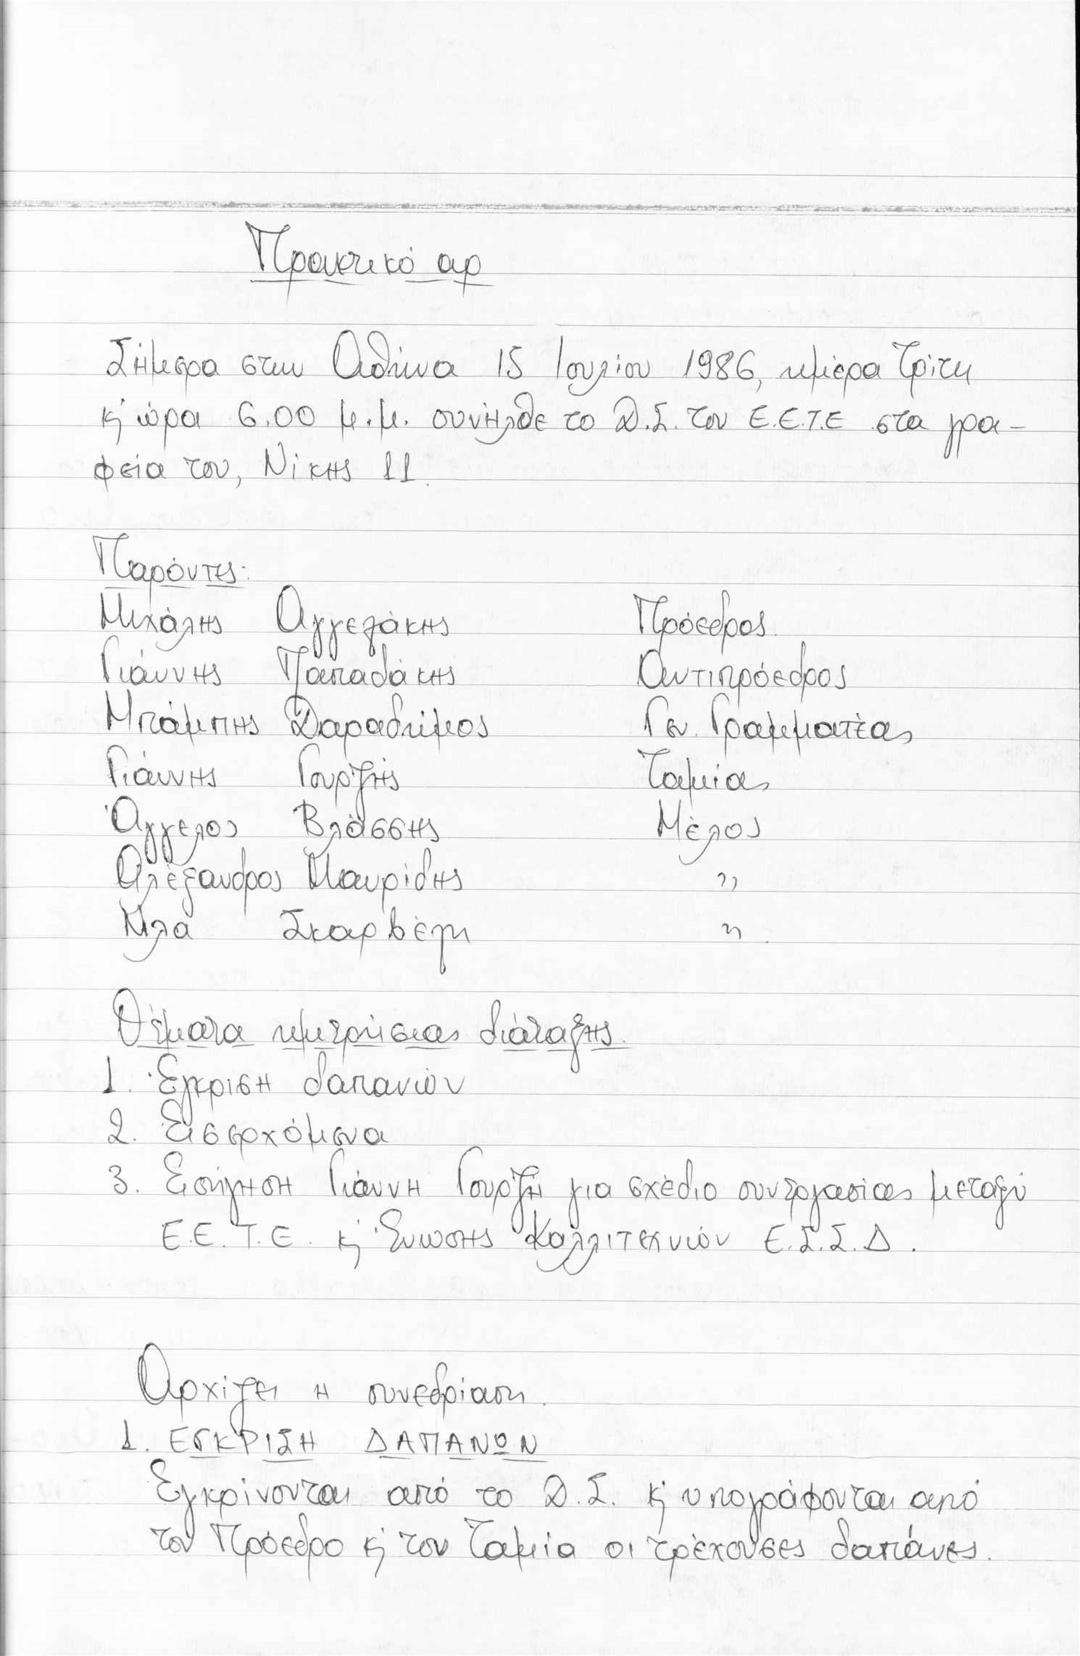 Πρακτικό αρ
Σήμερα στην Αθήνα 15 Ιουλίου 1986, ημέρα Τρίτη
κ' ώρα 6.00 μ.μ. συνήλθε το Δ.Σ. του Ε.Ε.Τ.Ε στα γρα-
φεία του, Νίκης 11.
Παρόντες:
Μιχάλης Αγγελάκης Πρόεδρος
Γιάννης Παπαδάκης Αντιπρόεδρος
Μπάμπης Δαραδήμος Γεν. Γραμματέας
Γιάννης Γουρζής Ταμίας
Άγγελος Βλάσσης Μέλος
Αλέξανδρος Μαυρίδης "
Μλα Σκαρβέλη "
Θέματα ημερήσιας διάταξης
1. Έγκριση δαπανών
2. Εισερχόμενα
3. Εισήγηση Γιάννη Γουρζή για σχέδιο συνεργασίας μεταξύ
Ε.Ε.Τ.Ε. κ' Ένωσης Καλλιτεχνών Ε.Σ.Σ.Δ.
Αρχίζει η συνεδρίαση.
1. ΕΓΚΡΙΣΗ ΔΑΠΑΝΩΝ
Εγκρίνονται από το Δ.Σ. κ' υπογράφονται από
τον Πρόεδρο κ' τον Ταμία οι τρέχουσες δαπάνες.